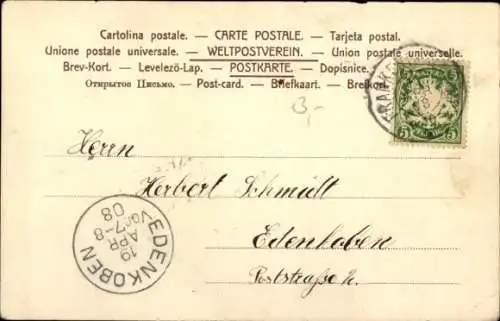 Cartolina postale. — CARTE POSTALE. — Tarjeta postal.
Unione postale universale. — WELTPOSTVEREIN. — Union postale universelle.
Brev-Kort. — Levelező-Lap. — POSTKARTE. — Dopisnice.
Открытое Письмо. — Post-card. — Briefkaart. — Brefkort
3,-
5 5
Herrn
Herbert Schmidt
Edenkoben
Poststrasse
EDENKOBEN
19
APR
Vor.7-8
08